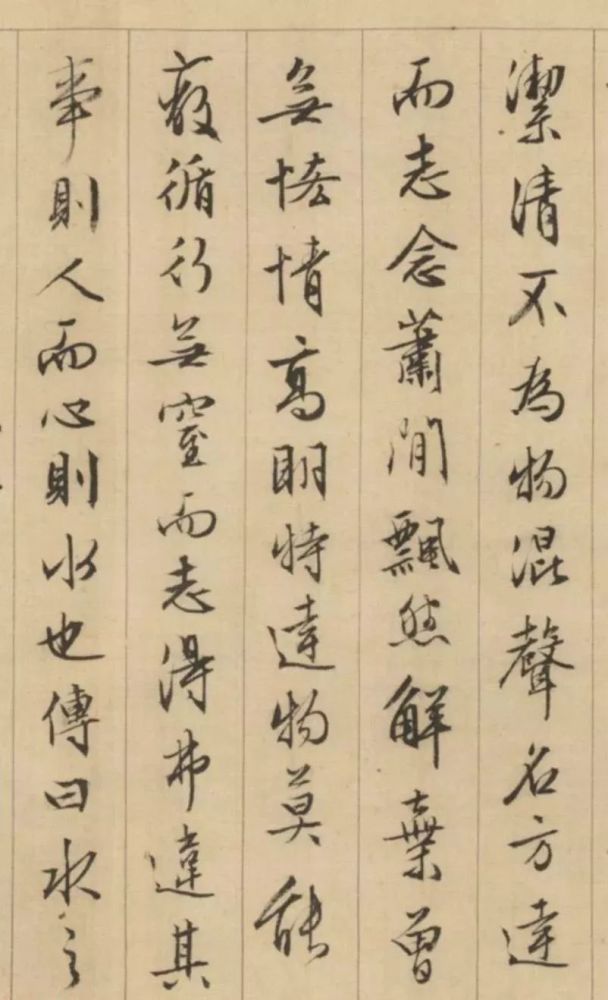 潔清不為物混聲名方達
而志念蕭閒飄然解棄曾
無恡情高明特達物莫能
循行無窒而志得弗違其
事則人而心則水也傳曰水之